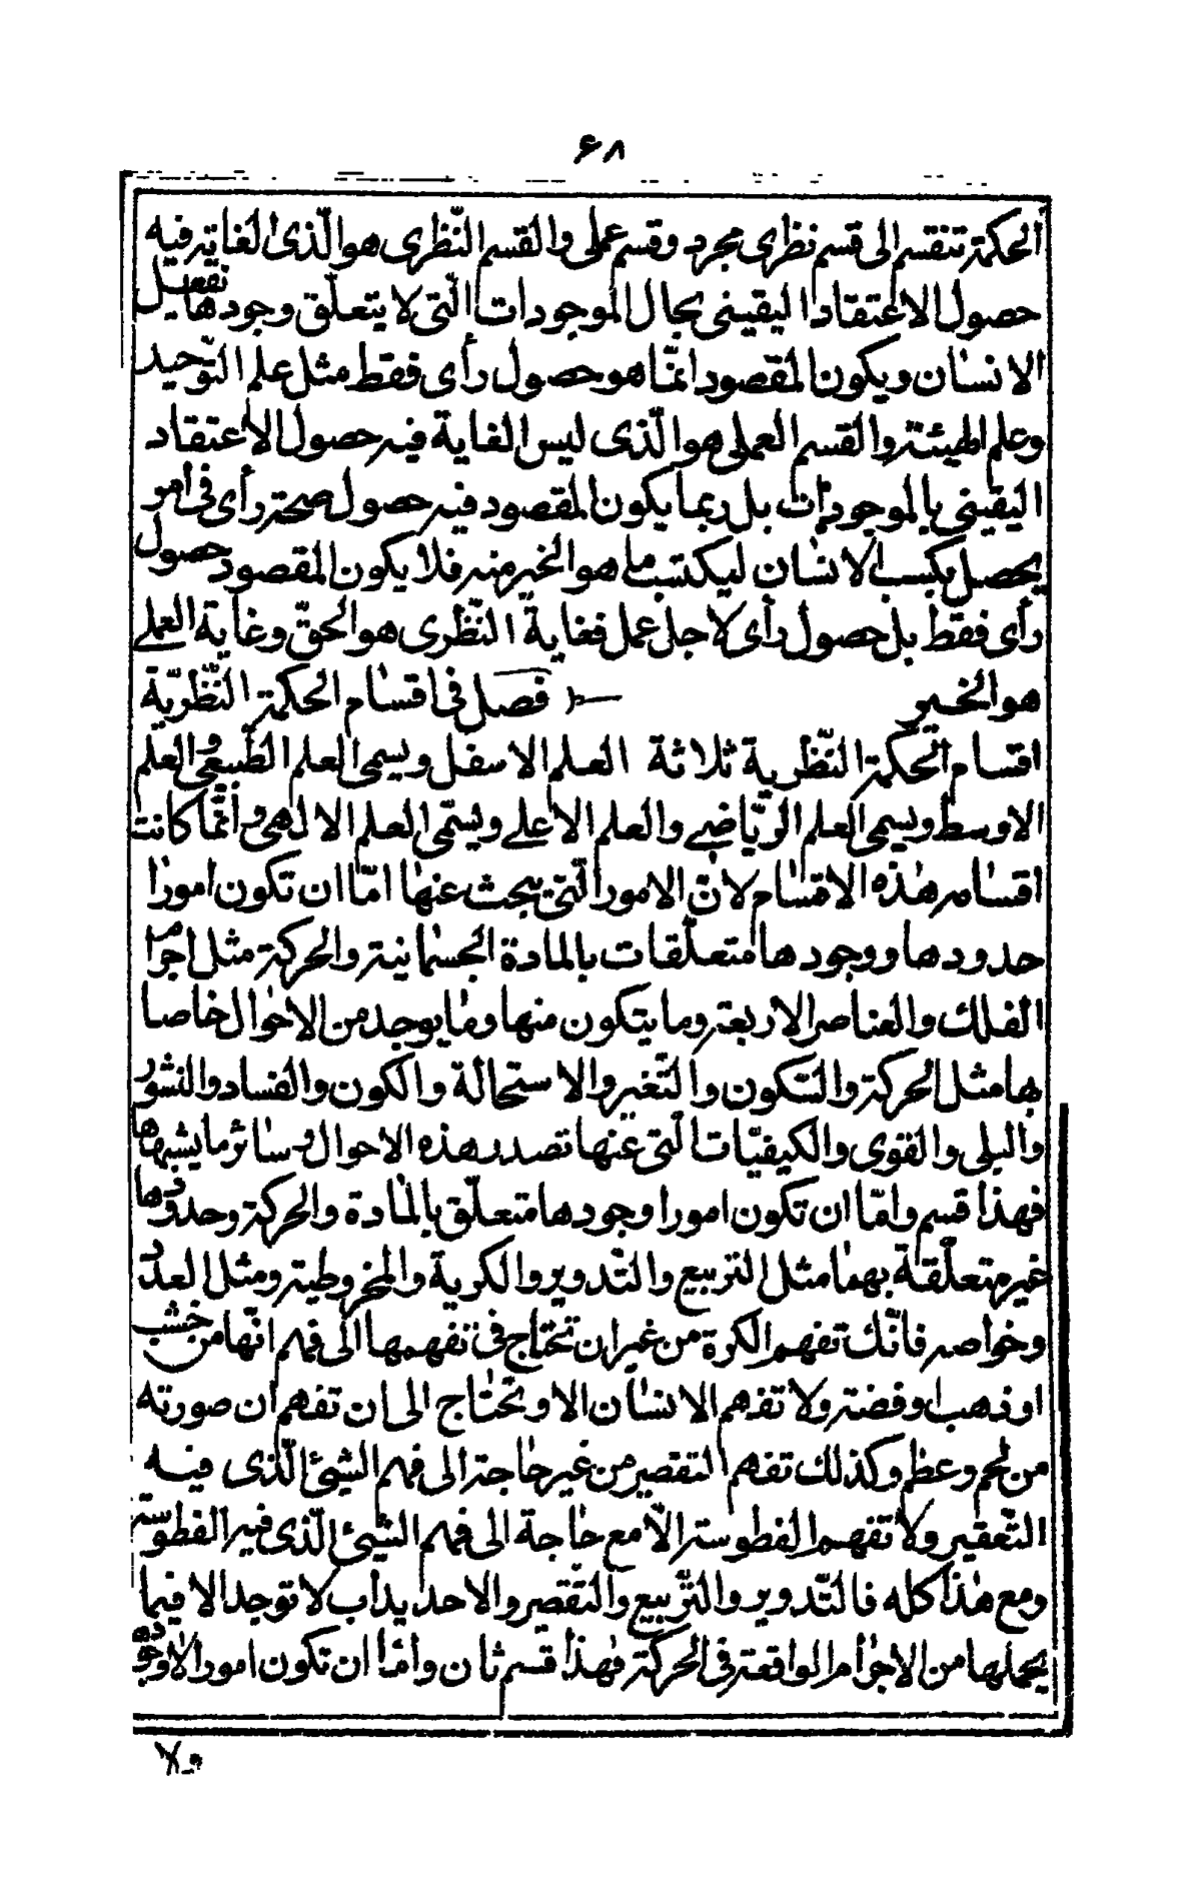 ۶۸
الحكمة تنقسم الى قسم نظرى مجرد وقسم عملى والقسم النّظرى هو الّذى الغاية فيه
حصول الاعتقاد اليقينى بحال الموجودات الّتى لا يتعلّق وجودها بفعل
الانسان ويكون المقصود انمّا هو حصول رأى فقط مثل علم التوّحيد
وعلم الهيئة والقسم العملى هو الّذى ليس الغاية فيه حصول الاعتقاد
اليقينى بالموجودات بل ربما يكون المقصود فيه حصول صحة رأى فى امر
يحصل بكسب الانسان ليكتسب ما هو الخير منه فلا يكون المقصود حصول
رأى فقط بل حصول رأى لاجل عمل فغاية النّظرى هو الحقّ وغاية العملے
هو الخير فصل فى اقسام الحكمة النّظريّة
اقسام الحكمة النّظرية ثلاثة العلم الاسفل ويسمى العلم الطّبيعى والعلم
الاوسط ويسمى العلم الريّاضے والعلم الاعلے ويسمّى العلم الالهى وانّما كانت
اقسامه هذه الاقسام لانّ الامور الّتى يبحث عنها امّا ان تكون امورا
حدودها ووجودها متعلّقات بالمادة الجسمانية والحركة مثل اجرام
الفلك والعناصر الاربعة وما يتكون منها وما يوجد من الاحوال خاصا
بها مثل الحركة والسّكون والتّغير والاستحالة والكون والفساد والنشور
والبلى والقوى والكيفيّات الّتى عنها تصدر هذه الاحوال وسائر ما يشبهها
فهذا قسم وامّا ان تكون امورا وجودها متعلّق بالمادة والحركة وحدودها
غير متعلّقة بهما مثل التربيع والتّدوير والكرية والمخروطية ومثل العدد
وخواصه فانّك تفهم الكرة من غير ان تحتاج فى تفهمها الى فهم انّها من خشب
او ذهب او فضة ولا تفهم الانسان الا وتحتاج الى ان تفهم ان صورته
من لحم وعظم وكذلك تفهم التقعير من غير حاجة الى فهم الشيئ الّذى فيه
التّقعير ولا تفهم الفطوسة الّا مع حاجة الى فهم الشيئ الّذى فيه الفطوسة
ومع هذا كله فالتّدوير والتّربيع والتّقعير والاحديداب لا توجد الا فيما
يحملها من الاجرام الواقعة فى الحركة فهذا قسم ثان وامّا ان تكون امورا لا وجودها
ولا